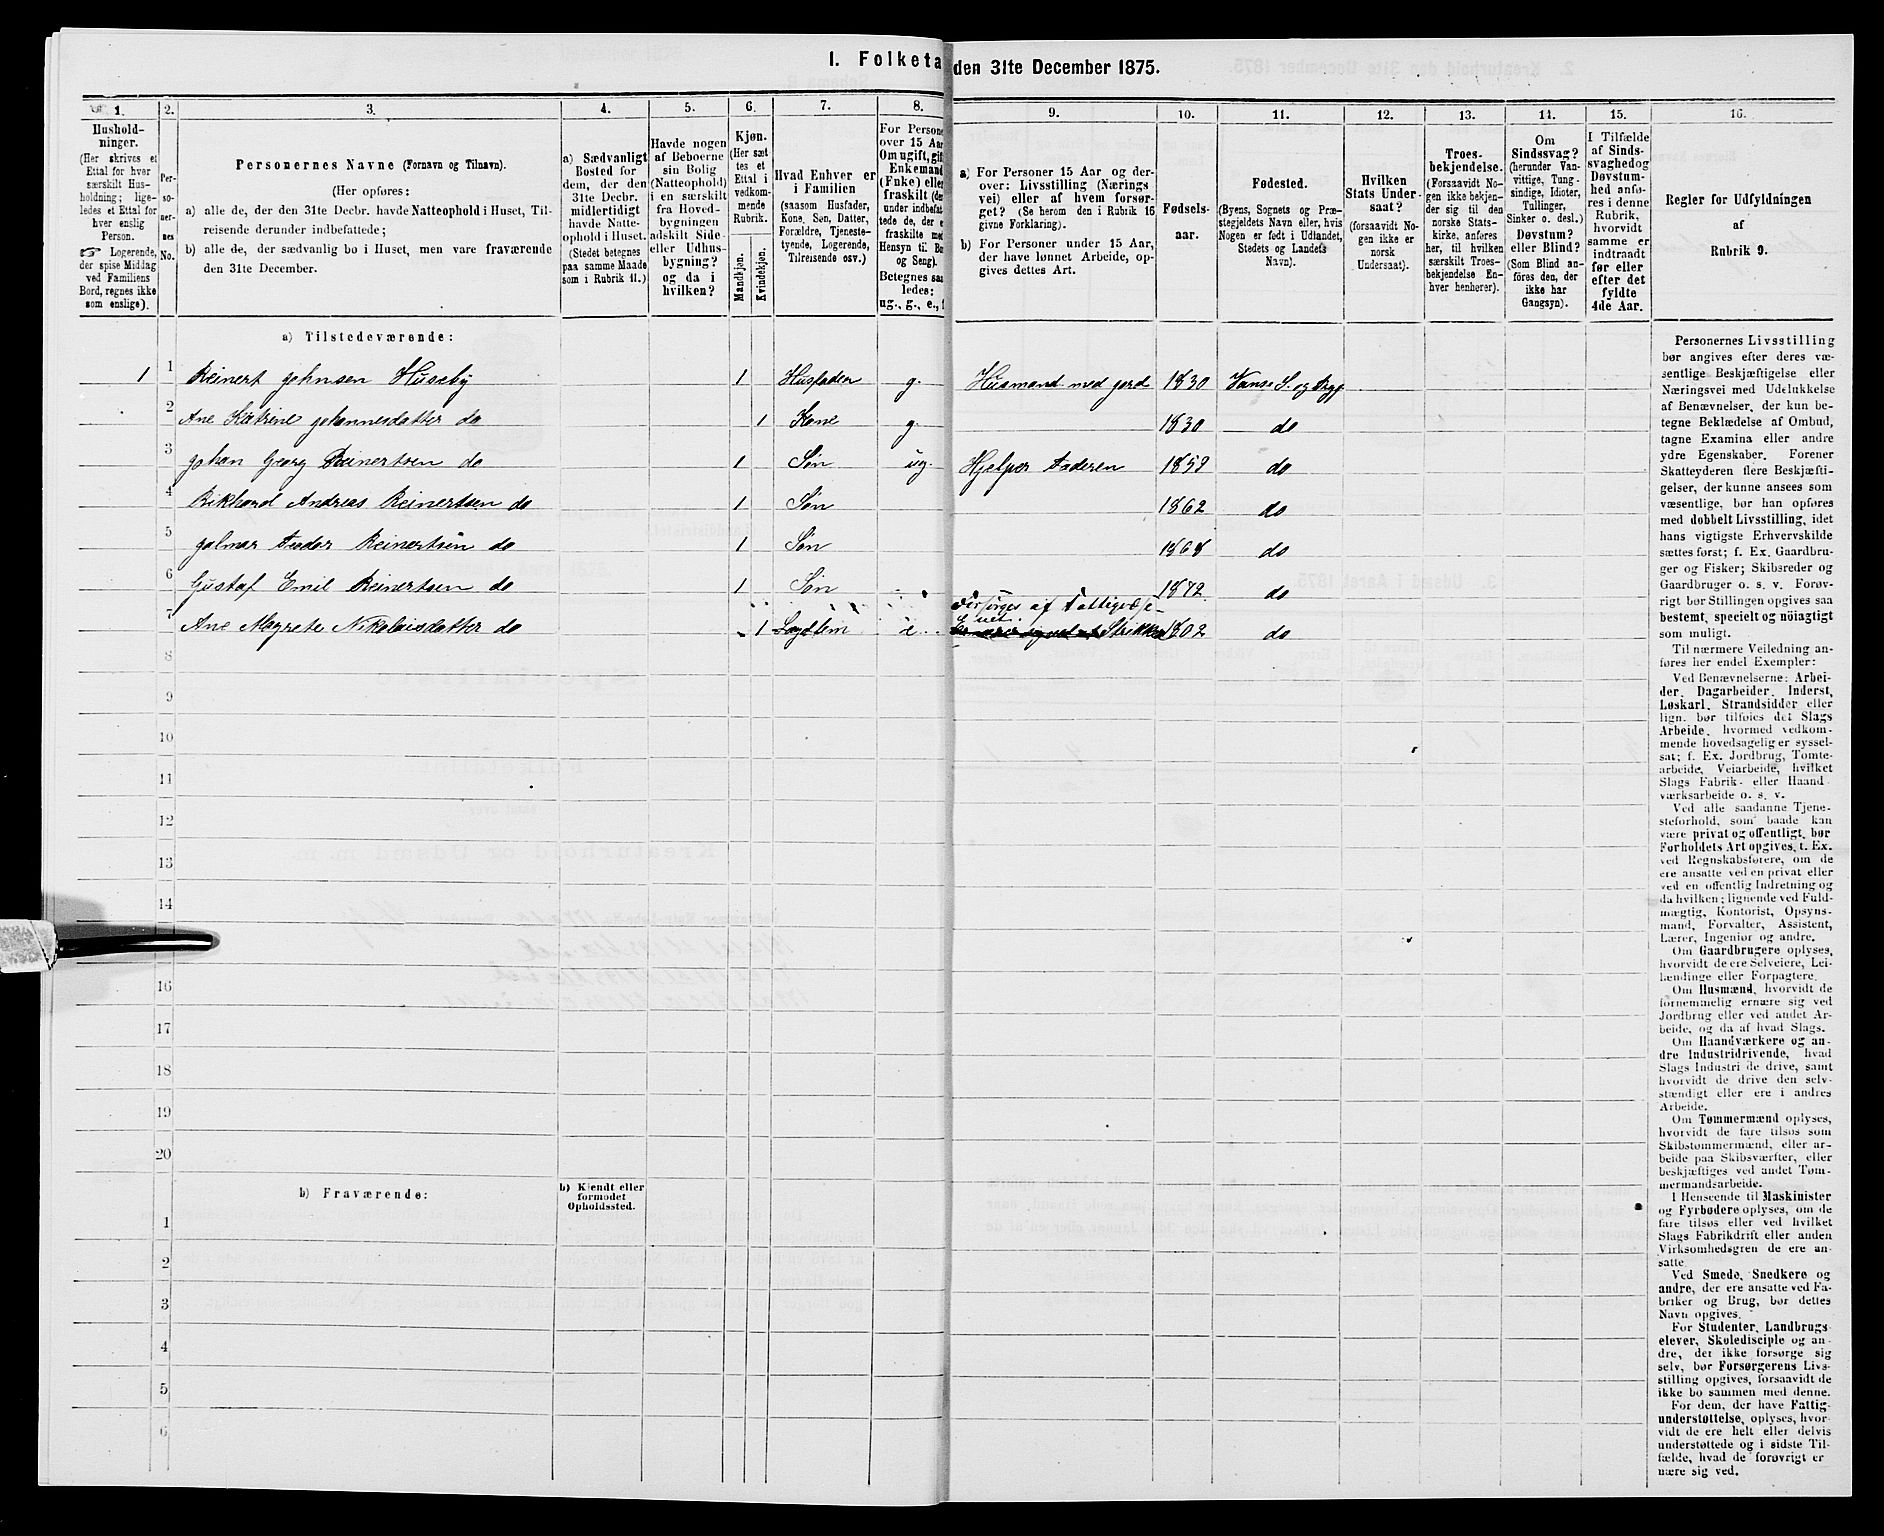 I. Folketa
den 31te December 1875.
1.
2.
3.
4.
5.
6.
7.
8.
9.
10.
11.
12.
13.
14.
15.
16.
Hushold-
ninger.
(Her skrives et
Ettal for hver
særskilt Hus-
holdning; lige-
ledes et Ettal for
hver enslig
Person.
☞ Logerende,
der spise Middag
ved Familiens
Bord, regnes ikke
som enslige).
Per-
so-
ner-
nes
No.
Personernes Navne (Fornavn og Tilnavn).
(Her opføres:
a) alle de, der den 31te Decbr. havde Natteophold i Huset, Til-
reisende derunder indbefattede;
b) alle de, der sædvanlig bo i Huset, men vare fraværende
den 31te December.
a) Sædvanligt
Bosted for
dem, der den
31te Decbr.
midlertidigt
havde Natte-
ophold i Huset.
(Stedet betegnes
paa samme Maade
som i Rubrik 11.)
Havde nogen
af Beboerne
sin Bolig
(Natteophold)
i en særskilt
fra Hoved-
bygningen
adskilt Side-
eller Udhus-
bygning?
og da i
hvilken?
Kjøn.
(Her sæt
tes et
Ettal i
vedkom-
mende
Rubrik.
Mandkjøn.
Kvindekjøn.
Hvad Enhver er
i Familien
(saasom Husfader,
Kone, Søn, Datter,
Forældre, Tjeneste-
tyende, Logerende,
Tilreisende osv.)
For Persone
over 15 Aar
Om ugift, gift
Enkemand
(Enke) eller
fraskilt (der
under indbefat
tede de, der e
fraskilte med
Hensyn til Bo
og Seng).
Betegnes saa
ledes:
ug., g., e., f
a) For Personer 15 Aar og der-
over: Livsstilling (Nærings
vei) eller af hvem forsør-
get? (Se herom den i Rubrik 16
givne Forklaring).
b) For Personer under 15 Aar,
der have lønnet Arbeide, op-
gives dettes Art.
Fødsels-
aar.
Fødested.
(Byens, Sognets og Præ-
stegjeldets Navn eller, hvis
Nogen er født i Udlandet,
Stedets og Landets
Navn).
Hvilken
Stats Under-
saat?
(forsaavidt No-
gen ikke er
norsk
Undersaat).
Troes-
bekjendelse.
(Forsaavidt No-
gen ikke bekjen-
der sig til den
norske Stats-
kirke, anføres
her, til hvilken
særskilt Troes-
bekjendelse En-
hver henhører).
Om
Sindssvag?
(herunder Van-
vittige, Tung-
sindige, Idioter,
Tullinger,
Sinker o. desl.)
Døvstum?
eller Blind?
(Som Blind an-
føres den, der
ikke har
Gangsyn).
I Tilfælde
af Sinds-
svaghed og
Døvstum-
hed anfø-
res i denne
Rubrik,
hvorvidt
samme er
indtraadt
før eller
efter det
fyldte
4de Aar.
Regler for Udfyldningen
af
Rubrik 9.
a) Tilstedeværende:
1 1 Reinert Johnsen Huseby 1 Husfader g. Husmand med jord 1830 Vanse S. og Prgj
2 Ane Katrine Johannesdatter do 1 Kone g. 1830 do
3 Johan Georg Reinertsen do 1 Søn ug. Hjelper Faderen 1859 do
4 Rikhard Andreas Reinertsen do 1 Søn 1862 do
5 Jalmar Teodor Reinertsen do 1 Søn 1868 do
6 Gustaf Emil Reinertsen do 1 Søn 1872 do
Forsørges af Fattigvæse-
net.
7 Ane Magrete Nikolaisdatter do 1 Lægdlem e. Strikker 1802 do
8
9
10
11
12
13
14
16
17
18
19
20
b) Fraværende:
b) Kjendt eller
formodet
Opholdssted.
1
2
3
4
5
6
Personernes Livsstilling
bør angives efter deres væ-
sentlige Beskjæftigelse eller
Næringsvei med Udelukkelse
af Benævnelser, der kun be-
tegne Beklædelse af Ombud,
tagne Examina eller andre
ydre Egenskaber. Forener
Skatteyderen flere Beskjæfti-
gelser, der kunne ansees som
væsentlige, bør han opføres
med dobbelt Livsstilling, idet
hans vigtigste Erhvervskilde
sættes først; f. Ex. Gaardbru-
ger og Fisker; Skibsreder og
Gaardbruger o. s. v. Forøv-
rigt bør Stillingen opgives saa
bestemt, specielt og nøiagtigt
som muligt.
Til nærmere Veiledning an-
føres her endel Exempler:
Ved Benævnelserne: Arbei-
der, Dagarbeider, Inderst,
Løskarl, Strandsidder eller
lign. bør tilføies det Slags
Arbeide, hvormed vedkom-
mende hovedsagelig er syssel-
sat; f. Ex. Jordbrug, Tomte-
arbeide, Veiarbeide, hvilket
Slags Fabrik- eller Haand-
værksarbeide o. s. v.
Ved alle saadanne Tjene-
steforhold, som baade kan
være privat og offentligt, bør
Forholdets Art opgives, t. Ex.
ved Regnskabsførere, om de
ere ansatte ved en privat eller
ved en offentlig Indretning og
da hvilken; lignende ved Fuld-
mægtig, Kontorist, Opsyns-
mand, Forvalter, Assistent,
Lærer, Ingeniør og andre.
Om Gaardbrugere oplyses,
hvorvidt de ere Selveiere, Lei-
lændinge eller Forpagtere.
Om Husmænd, hvorvidt de
fornemmelig ernære sig ved
Jordbrug eller ved andet Ar-
beide, og da af hvad Slags.
Om Haandværkere og an-
dre Industridrivende, hvad
Slags Industri de drive, samt
hvorvidt de drive den selv-
stændigt eller ere i andres
Arbeide.
Om Tømmermænd oplyses,
hvorvidt de fare tilsøs som
Skibstømmermænd, eller ar-
beide paa Skibsværfter, eller
beskjæftiges ved andet Tøm-
mermandsarbeide.
I Henseende til Maskinister
og Fyrbødere oplyses, om de
fare tilsøs eller ved hvilket
Slags Fabrikdrift eller anden
Virksomhedsgren de ere an-
satte.
Ved Smede, Snedkere og
andre, der ere ansatte ved Fa-
briker og Brug, bør dettes
Navn opgives.
For Studenter, Landbrugs
elever, Skoledisciple og an-
dre, der ikke forsørge sig
selv, bør Forsørgerens Livs-
stilling opgives, forsaavidt de
ikke bo sammen med denne.
For dem, der have Fattig-
understøttelse, oplyses, hvor-
vidt de ere helt eller delvis
understøttede og i sidste Til-
fælde, hvad de forøvrigt er
nære sig ved.